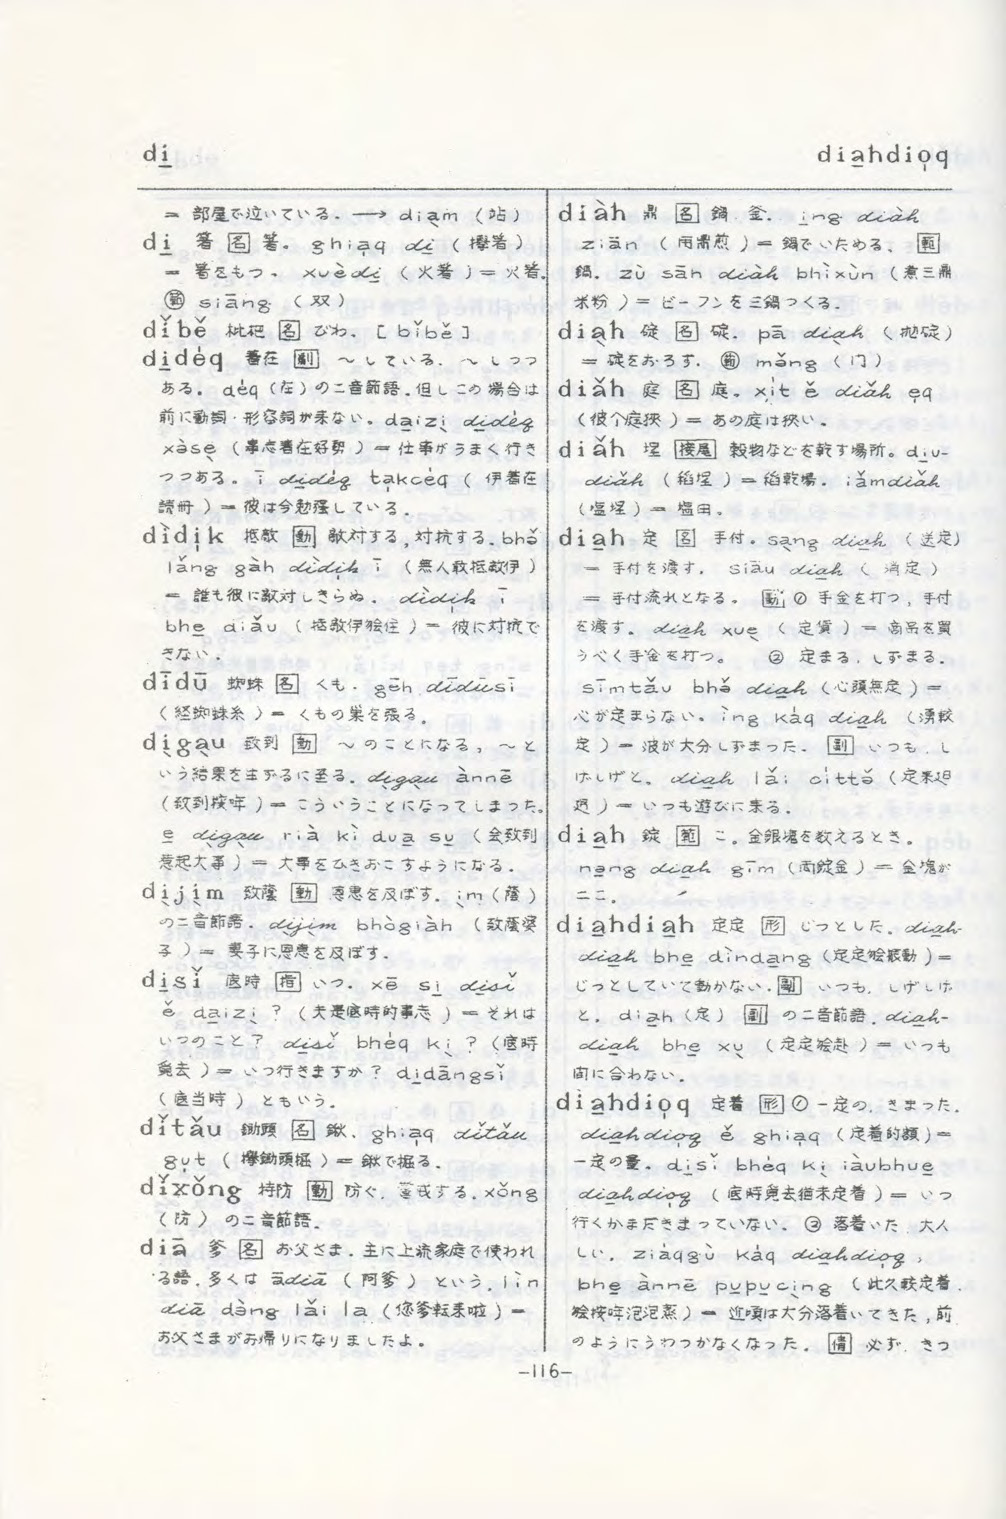 di̱
dia̱hdio̩q
= 部屋で泣いている. ⟶ dia̱m (站)
di̱ 箸 [名] 箸. ghia̍q di̱ (攑箸)
= 箸をもつ. xuèdi̱ (火箸) = 火箸.
siāng (双)
dǐbě 枇杷 [名] びわ. [bǐbě]
di̱dėq 著在 [副] 〜している. 〜しつつ
ある. dėq (在) の二音節語. 但しこの場合は
前に動詞・形容詞が来ない. da̱izì di̱dėq
= 仕事がうまく行き
つつある. ī di̱dėq ta̱kcėq (伊著在
讀冊) = 彼は今勉強している.
dìdi̍k 抵敵 [動] 敵対する, 対抗する. bhǒ
lǎng gàh dìdi̍k ī (無人敢抵敵伊)
= 誰も彼に敵対しきらぬ. dìdi̍k ī
bhe̱ diǎu (抵敵伊𣍐住) = 彼に対抗で
きない.
dīdū 蜘蛛 [名] くも. gēh dīdūsī
(経蜘蛛糸) = くもの巣を張る.
dįgąu 致到 [動] 〜のことになる, 〜と
いう結果を生ずるに至る. dįgąu ànnē
= こういうことになってしまった.
e̱ dįgąu rià kì dua̱ su̱ (会致到
惹起大事) = 大事をひきおこすようになる.
dįjįm 致蔭 [動] 恩恵を及ぼす. įm (蔭)
の二音節語. dįjįm bhògiàh (致蔭婆
子) = 妻子に恩恵を及ぼす.
di̱sǐ 底時 [指] いつ. xē si̱ di̱sǐ
ě da̱izì? (夫是底時的事志) = それは
いつのこと? di̱sǐ bhėq kį? (底時
= いつ行きますか? di̱dāngsǐ
(底当時) ともいう.
dǐtǎu 鋤頭 [名] 鍬. ghia̍q dǐtǎu
gu̍t (攑鋤頭掘) = 鍬で掘る.
dǐxǒng 持防 [動] 防ぐ. 警戒する. xǒng
(防) の二音節語.
diā 爹 [名] お父さま. 主に上流家庭で使われ
る語. 多くは ādiā (阿爹) という. lìn
diā dàng lǎi la (恁爹転来啦) =
お父さまがお帰りになりましたよ.
diàh 鼎 [名] 鍋. 釜. ìng diàh
ziān (用鼎煎) = 鍋でいためる. [範]
鍋. zù sāh diàh bhìxùn (煮三鼎
米粉) = ビーフンを三鍋つくる.
dia̱h 碇 [名] 碇. pā dia̱h (抛碇)
= 碇をおろす. mǎng (门)
diǎh 庭 [名] 庭. xi̍t ě diǎh e̍q
(彼个庭狹) = あの庭は狹い.
diǎh 埕 [接尾] 穀物などを乾す場所. di̱u-
diǎh (稲埕) = 稲乾場. iǎmdiǎh
(塩埕) = 塩田.
dia̱h 定 [名] 手付. sąng dia̱h (送定)
= 手付を渡す. siāu dia̱h (消定)
= 手付流れとなる. [動] ① 手金を打つ, 手付
を渡す. dia̱h xuę (定貨) = 商品を買
うべく手金を打つ. ② 定まる. しずまる.
sīmtǎu bhǒ dia̱h (心頭無定) =
心が定まらない. ìng kàq dia̱h (湧較
定) = 波が大分しずまった. [副] いつも. し
げしげと. dia̱h lǎi
= いつも遊びに来る.
dia̱h 錠 [範] こ. 金銀塊を数えるとき.
nṉg dia̱h gīm (両錠金) = 金塊が
二こ.
dia̱hdia̱h 定定 [形] じっとした. dia̱h-
dia̱h bhe̱ dìnda̱ng (定定𣍐振動) =
じっとしていて動かない. [副] いつも. しげしげ
と. dia̱h (定) [副] の二音節語. dia̱h-
dia̱h bhe̱ xų (定定𣍐赴) = いつも
間に合わない.
dia̱hdio̍q 定着 [形] ① 一定の. きまった.
dia̱hdio̍q ě ghia̍q (定着的額) =
一定の量. di̱sǐ bhėq kį iàubhue̱
dia̱hdio̍q = いつ
行くかまだきまっていない. ② 落着いた. 大人
しい. ziàqgù kàq dia̱hdio̍q,
bhe̱ ànnē pu̱pu̱cìng (此久較定着
= 近頃は大分落着いてきた, 前
のようにうわつかなくなった. [情] 必ず. きっ
-116-